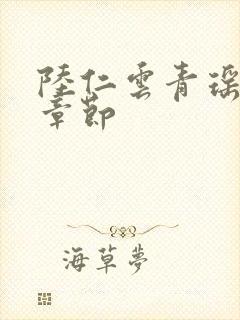 陸仁雲青瑶
章節
海草夢